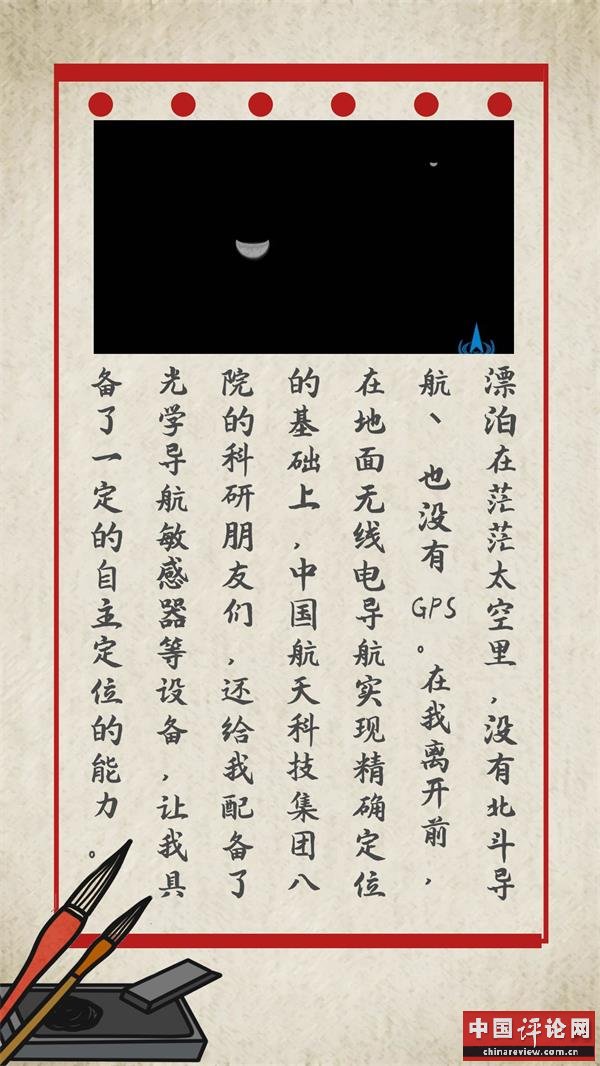 漂泊在茫茫太空里，没有北斗导
航、也没有GPS。在我离开前，
在地面无线电导航实现精确定位
的基础上，中国航天科技集团八
院的科研朋友们，还给我配备了
光学导航敏感器等设备，让我具
备了一定的自主定位的能力。
中国评论网
chinareview.com.cn